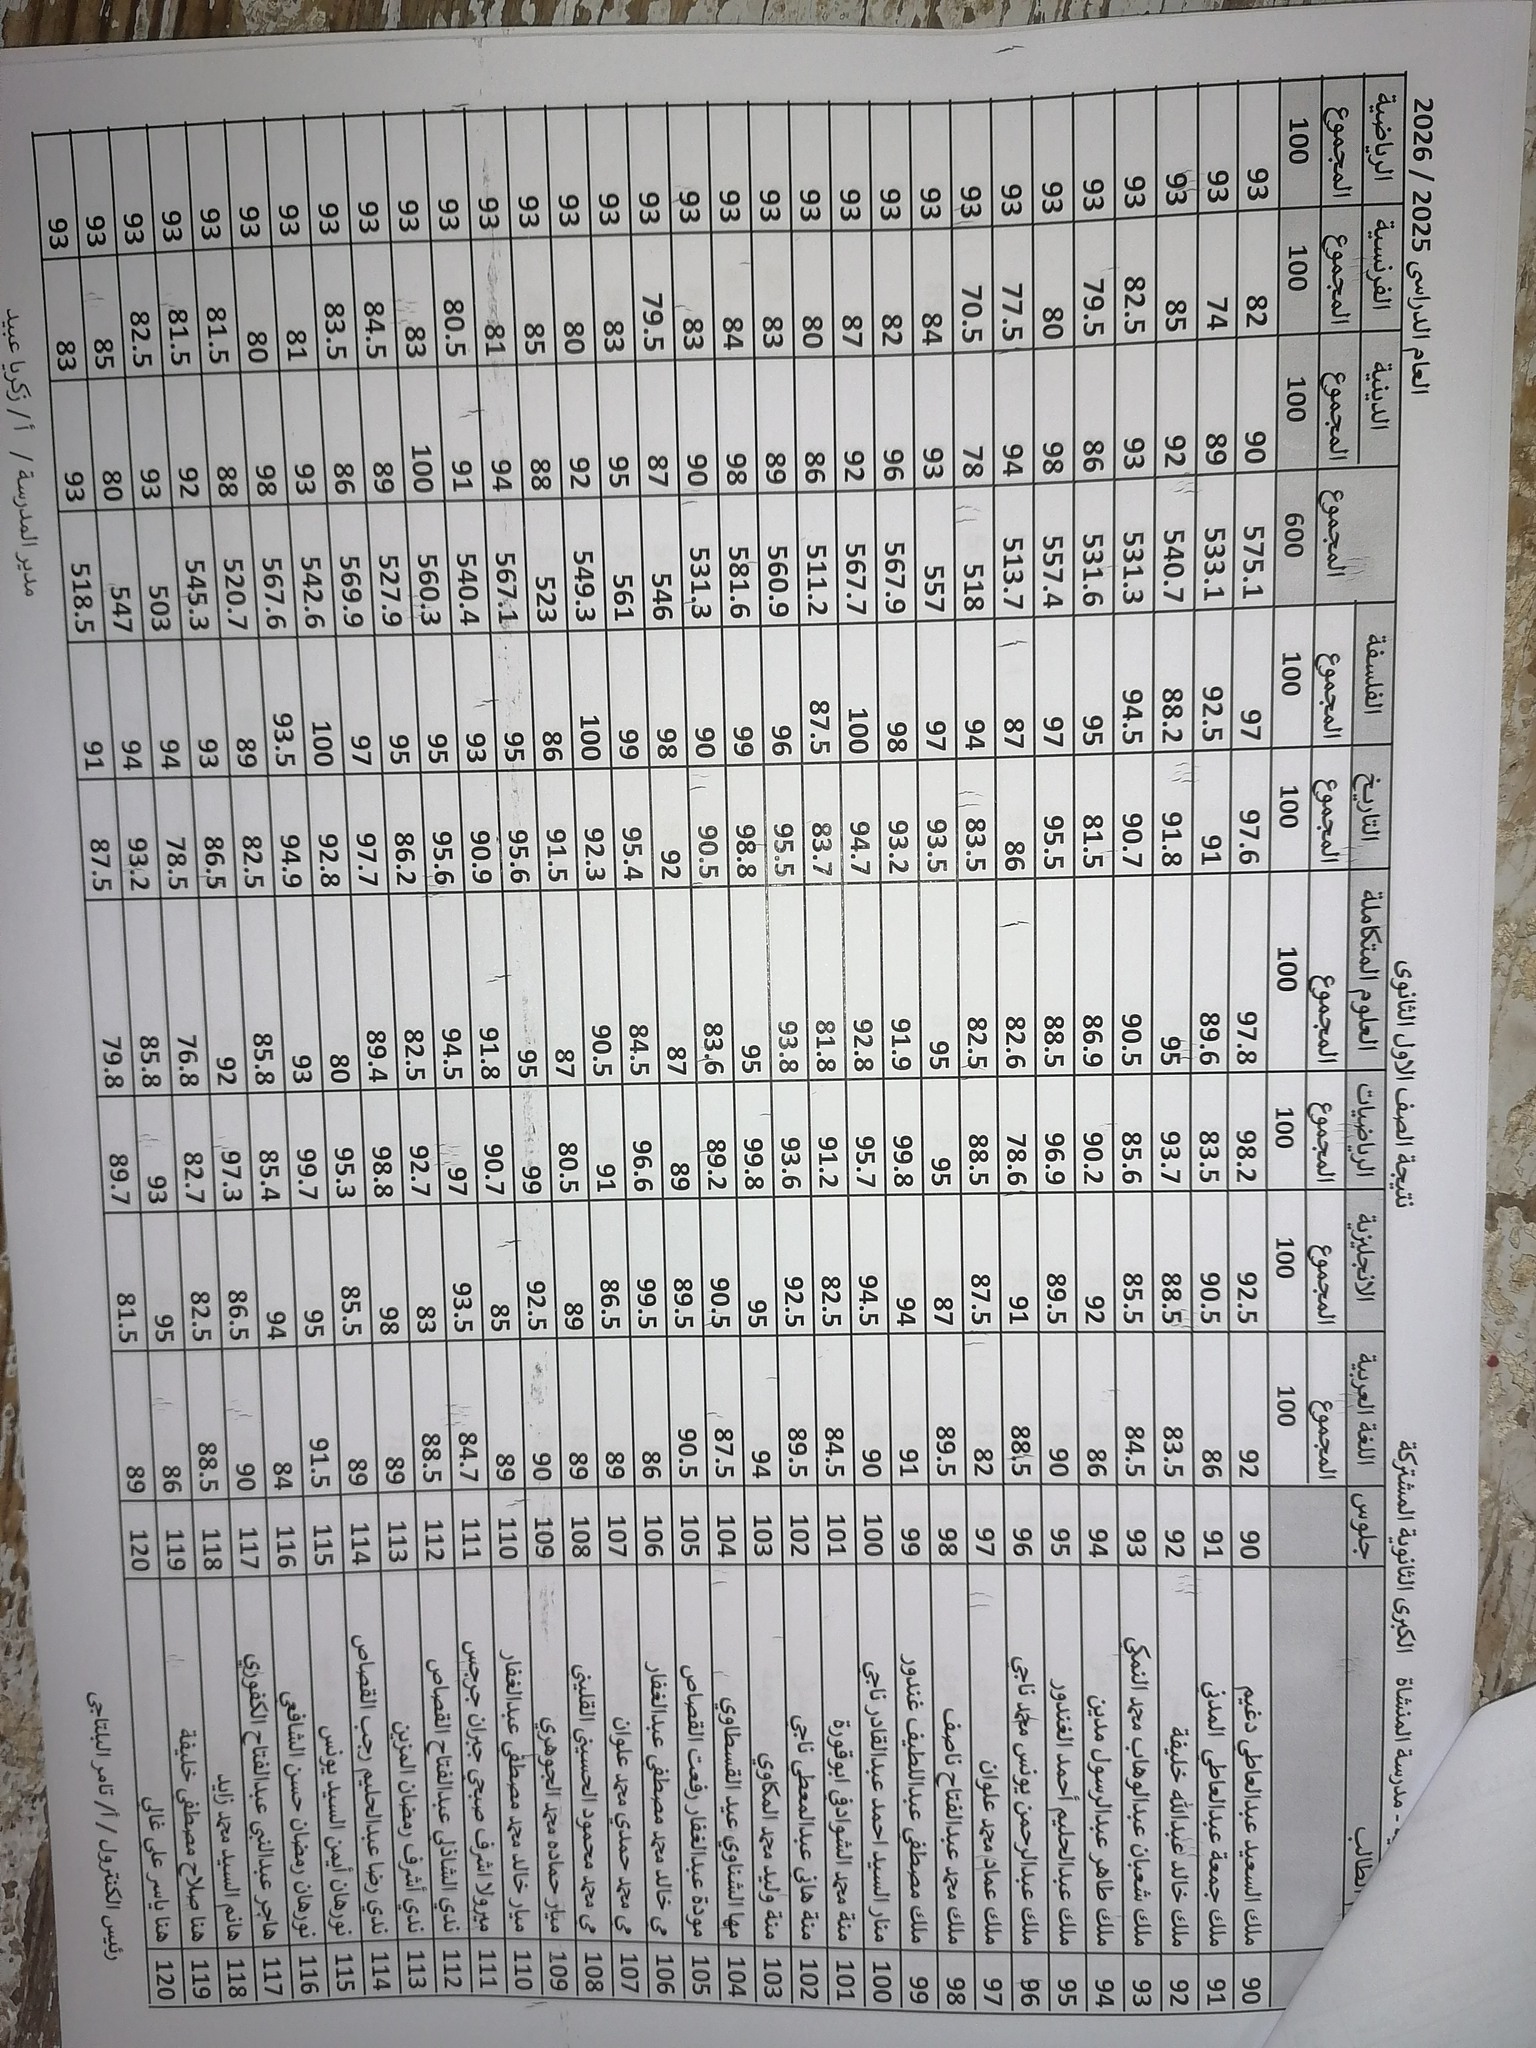 - مدرسة المنشاة الكبرى الثانوية المشتركة نتيجة الصف الاول الثانوى العام الدراسى 2025 / 2026
الطالب جلوس اللغة العربية الانجليزية الرياضيات العلوم المتكاملة التاريخ الفلسفة المجموع الدينية الفرنسية الرياضية
المجموع المجموع المجموع المجموع المجموع المجموع المجموع المجموع المجموع
100 100 100 100 100 100 600 100 100 100
90 ملك السعيد عبدالعاطي دغيم 90 92 92.5 98.2 97.8 97.6 97 575.1 90 82 93
91 ملك جمعة عبدالعاطي المدنى 91 86 90.5 83.5 89.6 91 92.5 533.1 89 74 93
92 ملك خالد عبدالله خليفة 92 83.5 88.5 93.7 95 91.8 88.2 540.7 92 85 93
93 ملك شعبان عبدالوهاب محمد النمكي 93 84.5 85.5 85.6 90.5 90.7 94.5 531.3 93 82.5 93
94 ملك طاهر عبدالرسول مدين 94 86 92 90.2 86.9 81.5 95 531.6 86 79.5 93
95 ملك عبدالحليم أحمد الغندور 95 90 89.5 96.9 88.5 95.5 97 557.4 98 80 93
96 ملك عبدالرحمن يونس محمد ناجي 96 88.5 91 78.6 82.6 86 87 513.7 94 77.5 93
97 ملك عماد محمد علوان 97 82 87.5 88.5 82.5 83.5 94 518 78 70.5 93
98 ملك محمد عبدالفتاح ناصف 98 89.5 87 95 95 93.5 97 557 93 84 93
99 ملك مصطفى عبداللطيف غندور 99 91 94 99.8 91.9 93.2 98 567.9 96 82 93
100 منار السيد احمد عبدالقادر ناجي 100 90 94.5 95.7 92.8 94.7 100 567.7 92 87 93
101 منة محمد الشوادفى ابوقورة 101 84.5 82.5 91.2 81.8 83.7 87.5 511.2 86 80 93
102 منة هانى عبدالمعطى ناجى 102 89.5 92.5 93.6 93.8 95.5 96 560.9 89 83 93
103 منة وليد محمد المكاوي 103 94 95 99.8 95 98.8 99 581.6 98 84 93
104 مها الشناوي عيد القسطاوي 104 87.5 90.5 89.2 83.6 90.5 90 531.3 90 83 93
105 مودة عبدالغفار رفعت القصاص 105 90.5 89.5 89 87 92 98 546 87 79.5 93
106 مى خالد محمد مصطفى عبدالغفار 106 86 99.5 96.6 84.5 95.4 99 561 95 83 93
107 مي محمد حمدي محمد علوان 107 89 86.5 91 90.5 92.3 100 549.3 92 80 93
108 مى محمد محمود الحسينى القلينى 108 89 89 80.5 87 91.5 86 523 88 85 93
109 ميار حماده محمد الجوهري 109 90 92.5 99 95 95.6 95 567.1 94 81 93
110 ميار خالد محمد مصطفى عبدالغفار 110 89 85 90.7 91.8 90.9 93 540.4 91 80.5 93
111 ميرولا اشرف صبحى جبران جرجس 111 84.7 93.5 97 94.5 95.6 95 560.3 100 83 93
112 ندي الشاذلى عبدالفتاح القصاص 112 88.5 83 92.7 82.5 86.2 95 527.9 89 84.5 93
113 ندي أشرف رمضان المزين 113 89 98 98.8 89.4 97.7 97 569.9 86 83.5 93
114 ندي رضا عبدالحليم رجب القصاص 114 89 85.5 95.3 80 92.8 100 542.6 93 81 93
115 نورهان أيمن السيد يونس 115 91.5 95 99.7 93 94.9 93.5 567.6 98 80 93
116 نورهان رمضان حسن الشافعى 116 84 94 85.4 85.8 82.5 89 520.7 88 81.5 93
117 هاجر عبدالنبي عبدالفتاح الكفوري 117 90 86.5 97.3 92 86.5 93 545.3 92 81.5 93
118 هانم السيد محمد زايد 118 88.5 82.5 82.7 76.8 78.5 94 503 93 82.5 93
119 هنا صلاح مصطفى خليفة 119 86 95 93 85.8 93.2 94 547 80 85 93
120 هنا ياسر على غالى 120 89 81.5 89.7 79.8 87.5 91 518.5 93 83 93
رئيس الكنترول / أ/ تامر البلتاجى مدير المدرسة / أ / زكريا عبيد